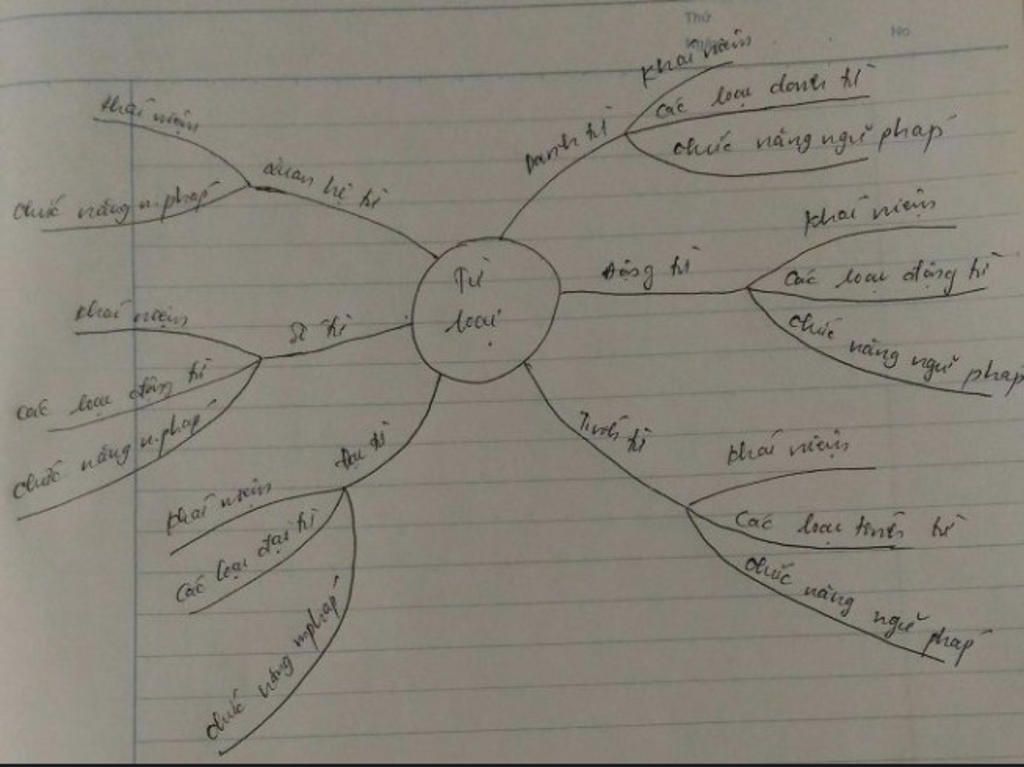 Thứ
No
Từ
loại
Danh từ
Khái niệm
Các loại danh từ
Chức năng ngữ pháp
Động từ
Khái niệm
Các loại động từ
Chức năng ngữ pháp
Tính từ
Khái niệm
Các loại tính từ
Chức năng ngữ pháp
Đại từ
Khái niệm
Các loại đại từ
Chức năng n.pháp
Số từ
Khái niệm
Các loại
từ
Chức năng n.pháp
Quan hệ từ
Khái niệm
Chức năng n.pháp